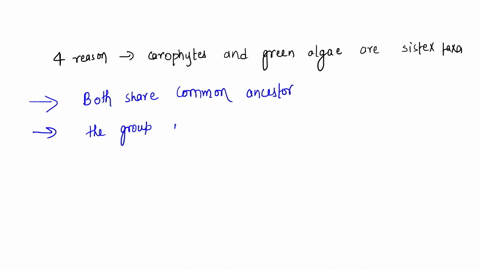 4 reason → carophytes and green algae are sistex taxa
→ Both share common ancestor
→ the group